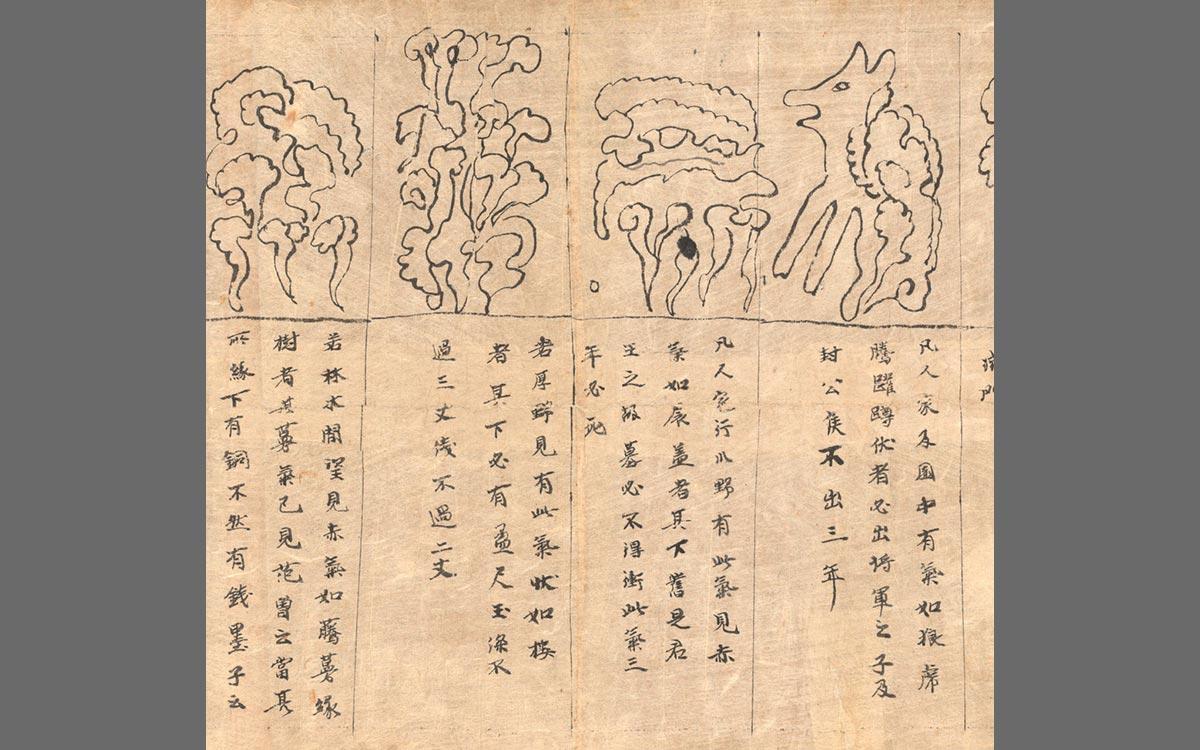 凡人家及園中有氣如狼虎
騰躍蹲伏者必出將軍之子及
封公侯不出三年
凡人行川野有此氣見赤
氣如蓋者其下舊是君
王之墓必不得衝此氣三
年必死
若厚野見有此氣狀如樓
者其下必有盈尺玉深不
過三丈淺不過二丈
若林木間望見赤氣如藤蔓緣
樹者其蔓氣已見范曾云當其
所緣下有銅不然有錢墨子云